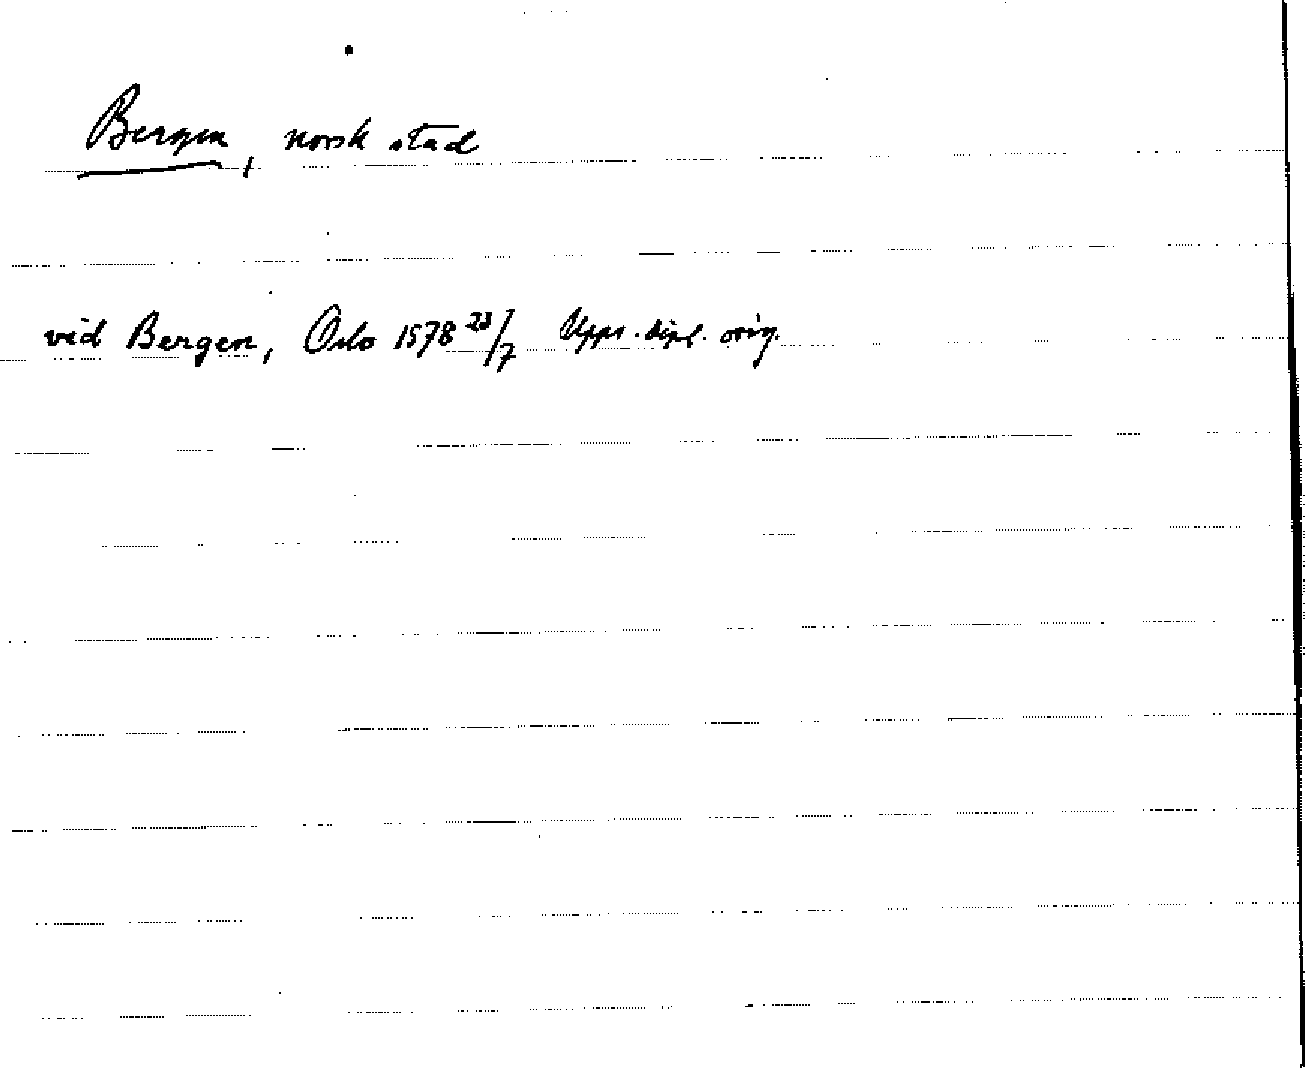 Bergen, norsk stad
vid Bergen, Oslo 1578 23/7 Upps. dipl. orig.